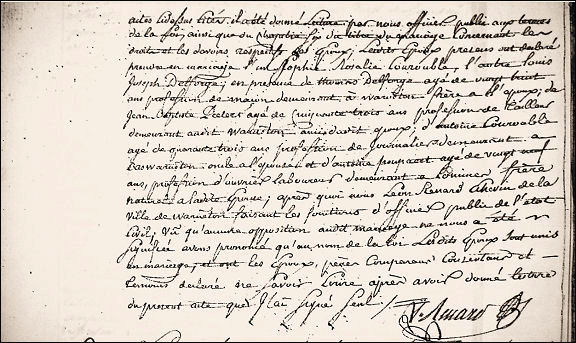 actes cidessus cités, il a été donné lecture par nous officier public aux termes
de la loi, ainsi que du chapitre six du titre du mariage concernant les
droits et les devoirs respectifs des Epoux, lesdits Epoux presens ont declaré
prendre en mariage l'un Sophie Rosalie Couroubble, l'autre Louis
Joseph Delforge; en presence de Delforge agé de vingt huit
ans profession de maçon demeurant à Warneton frère a l'Epoux; de
Jean Baptiste agé de cinquante trois ans profession de tailleur
demeurant audit Warneton, ami dudit epoux; d'antoine Couroubble
agé de quarante trois ans profession de journalier demeurant a
baswarneton oncle a l'epouse et d'antoine agé de vingt neuf
ans, profession d'ouvrier laboureur demeurant a Comines frère
a ladite Epouse; après quoi nous Léon Renard Echevin de la
ville de Warneton faisant les fonctions d'officier public de l'etat
civil, vû qu'aucune opposition audit mariage ne nous a été
signifiée avons prononcé qu'au nom de la loi lesdits Epoux sont unis
en mariage, et ont les Epoux, père Comparans Consentans et
temoins declaré ne savoir écrire après avoir donné lecture
du present acte que j'ai signé seul.
Renard